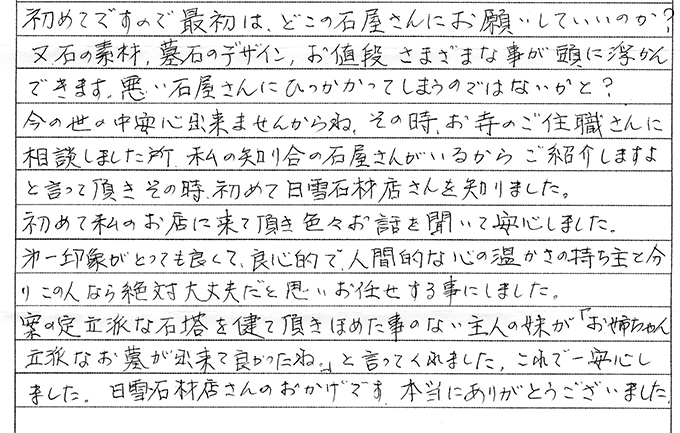 初めてですので最初は、どこの石屋さんにお願いしていいのか?
又石の素材,墓石のデザイン,お値段 さまざまな事が頭に浮かん
できます。悪い石屋さんにひっかかってしまうのではないかと?
今の世の中安心出来ませんからね。その時、お寺のご住職さんに
相談しました所、私の知り合の石屋さんがいるから ご紹介しますよ
と言って頂きその時、初めて日雪石材店さんを知りました。
初めて私のお店に来て頂き色々お話を聞いて安心しました。
第一印象がとっても良くて、良心的で、人間的な心の温かさの持ち主と分
りこの人なら絶対大丈夫だと思いお任せする事にしました。
案の定立派な石塔を健て頂きほめた事のない主人の妹が「お姉ちゃん
立派なお墓が出来て良かったね。」と言ってくれました。これで一安心し
ました。 日雪石材店さんのおかげです。本当にありがとうございました。